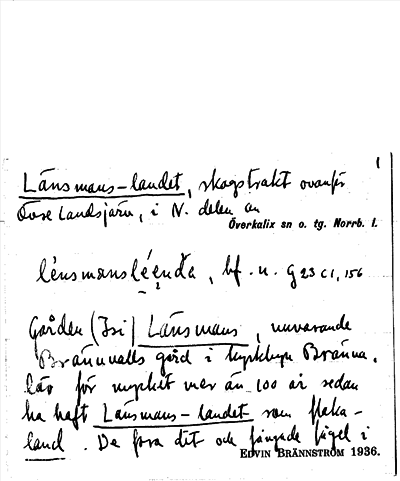 1
Länsmans-landet, skogstrakt ovanför
Övre Landsjärv, i N. delen av
Överkalix sn o. tg. Norrb. l.
lénsmansléenda, bf. n. G 23 c1, 156
Gården (Isi) Länsmans, nuvarande
Brännvalls gård i kyrkbyn Bränna,
lär för mycket mer än 100 år sedan
ha haft Länsmans-landet som flaka-
land. De foro dit och fångade fågel i
EDVIN BRÄNNSTRÖM 1936.